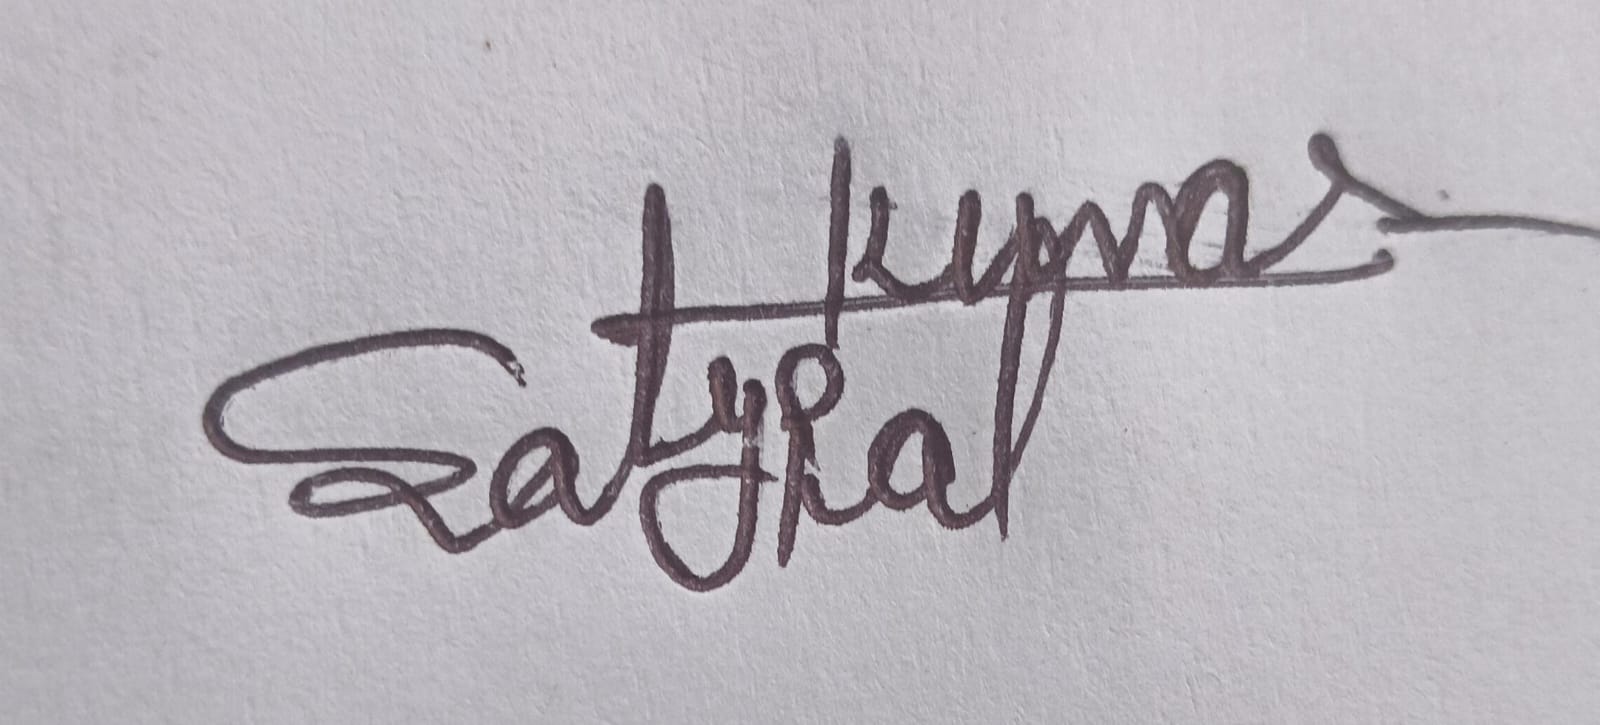 Satypal
Kumar